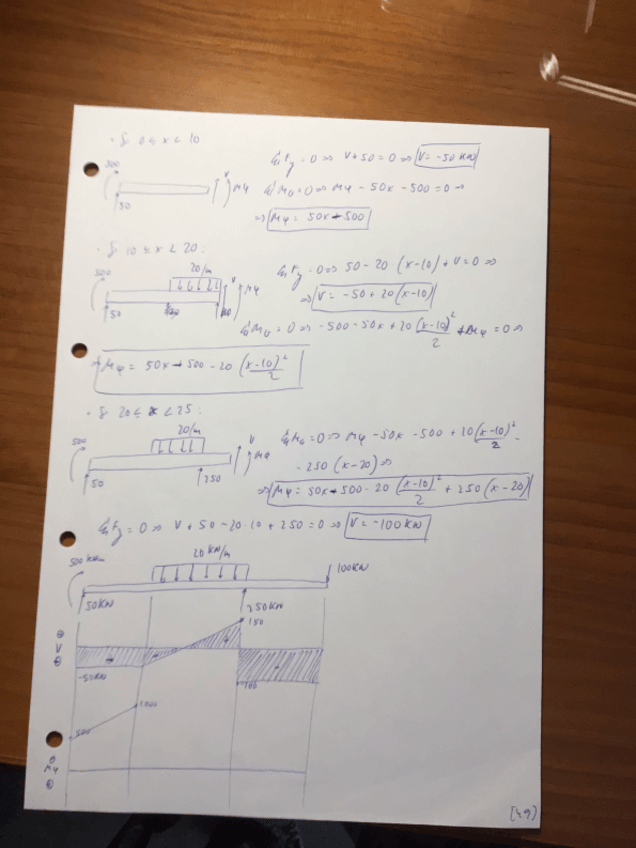 0 ≤ x < 10
500
ΣFy = 0 => V + 50 = 0 => V = -50 KN
V
Mφ
50
ΣM0 = 0 => Mφ - 50x - 500 = 0 =>
=> Mφ = 50x + 500
10 ≤ x < 20:
500
20/m
V
Mφ
50
ΣFy = 0 => 50 - 20 · (x-10) + V = 0 =>
=> V = -50 + 20(x-10)
ΣM0 = 0 => -500 - 50x + 20 (x-10)²/2 + Mφ = 0 =>
Mφ = 50x + 500 - 20 (x-10)²/2
20 ≤ x < 25:
500
20/m
V
Mφ
50
250
ΣM0 = 0 => Mφ - 50x - 500 + 20 (x-10)²/2 -
- 250 (x-20) =>
=> Mφ = 50x + 500 - 20 (x-10)²/2 + 250 (x-20)
ΣFy = 0 => V + 50 - 20·10 + 250 = 0 => V = -100 KN
20 KN/m
100KN
50KN
250KN
V
150
-50KN
100
500
1000
Mφ
[49]